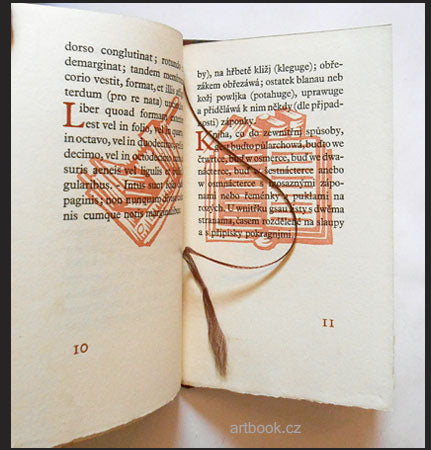 dorso conglutinat; rotunde
demarginat; tandem membrana
corio vestit, format, et illis affigit in-
terdum (pro re nata) uncinulos.
Liber quoad formam externam
est vel in folio, vel in quarto,
in octavo, vel in duo-
decimo, vel in octodecimo
suris aeneis vel ligulis et
gularibus. Intus sunt folia
paginis; non nunquam
nis cumque notis marginalibus
10
by), na hřbetě kližj (kleguge); obře-
zákem ořezává; ostatek blanau neb
kožj powljka (potahuge), uprawuge
a přidělává k nim někdy (dle případ-
nosti) záponky.
Kniha, co do zewnitřnj spůsoby,
gest buďto půlarchowá, buďto we
čtwrtce, buď w osmerce, buď we dwa-
nácterce, buď w šestnácterce anebo
w osmnácterce s mosaznými zápo-
nami nebo řemenky a puklami na
rozých. U wnitřku gsau listy s dwěma
stranama, časem rozdělené na slaupy
a s přjpisky pokragnjmi.
11
artbook.cz